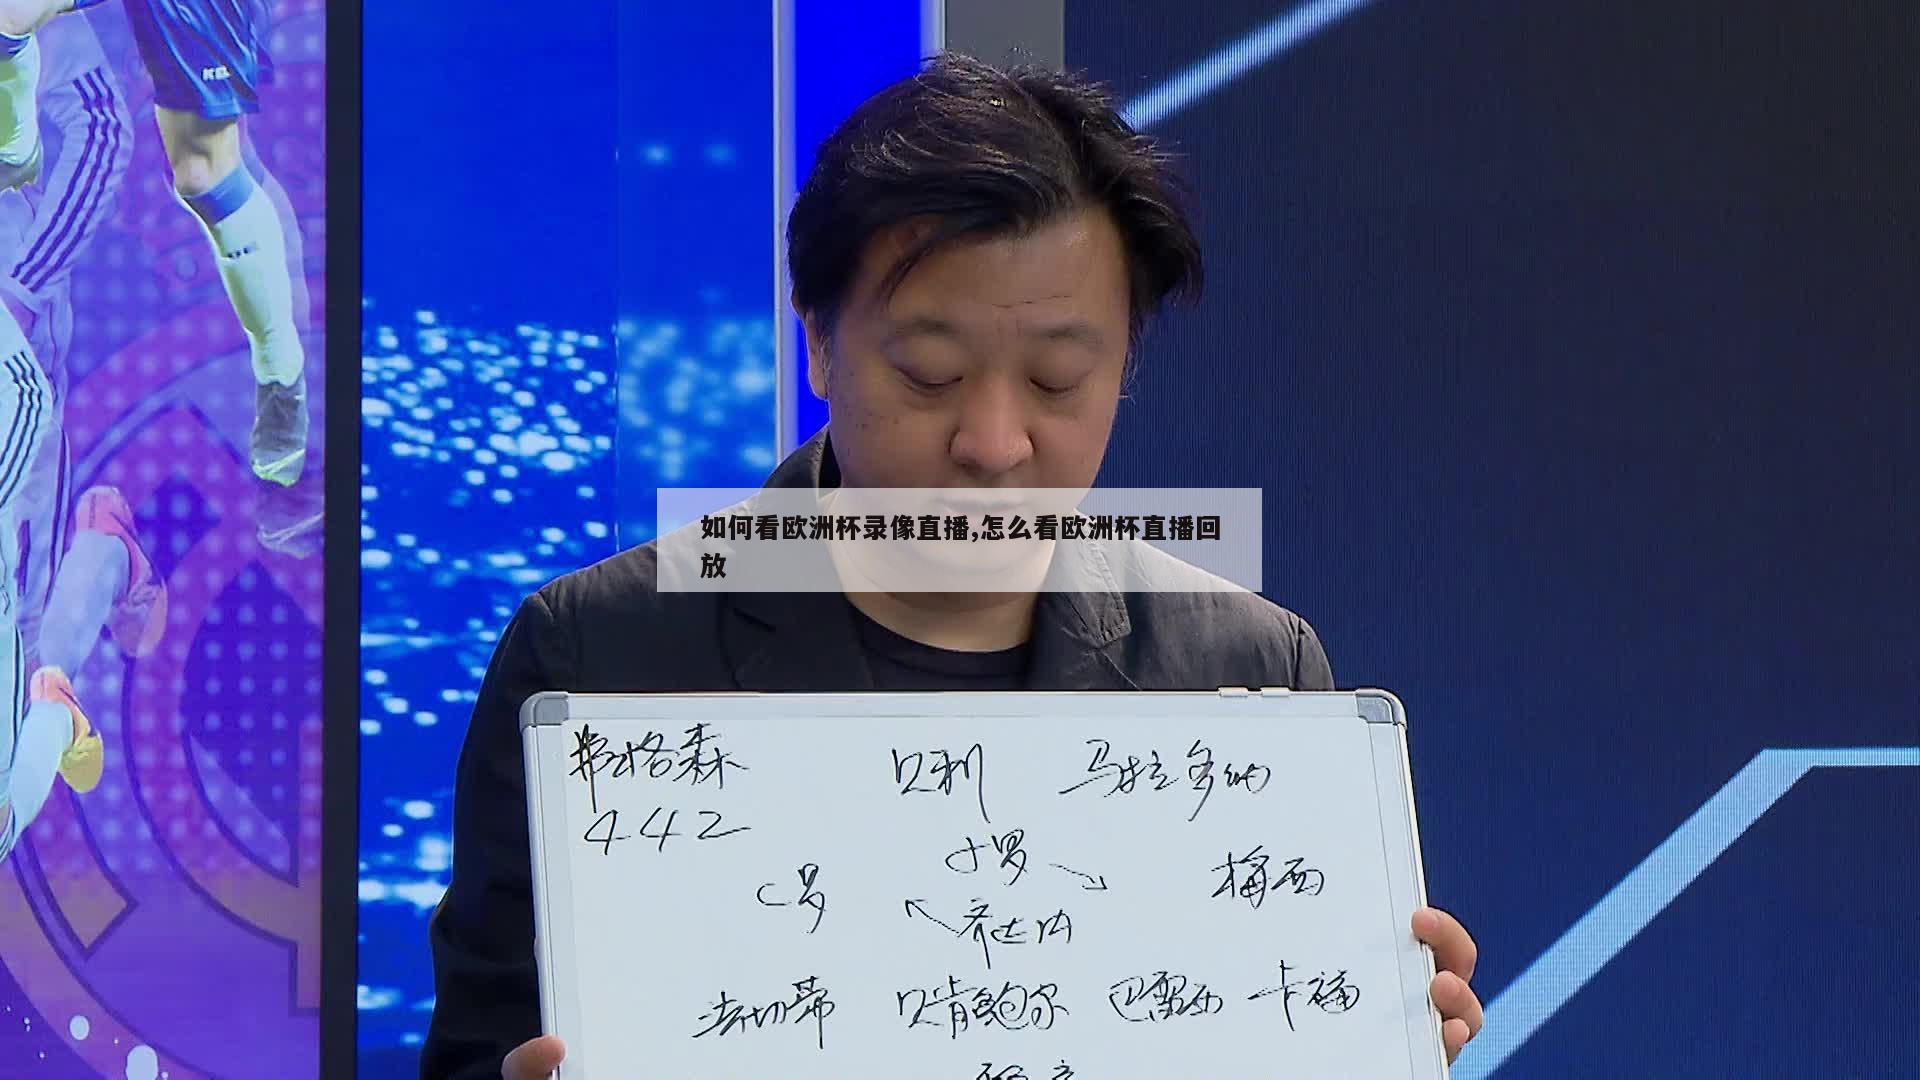 KEL
如何看欧洲杯录像直播,怎么看欧洲杯直播回
放
弗格森 贝利 马拉多纳
442
小罗
C罗 梅西
齐达内
法切蒂 贝肯鲍尔 巴雷西 卡福